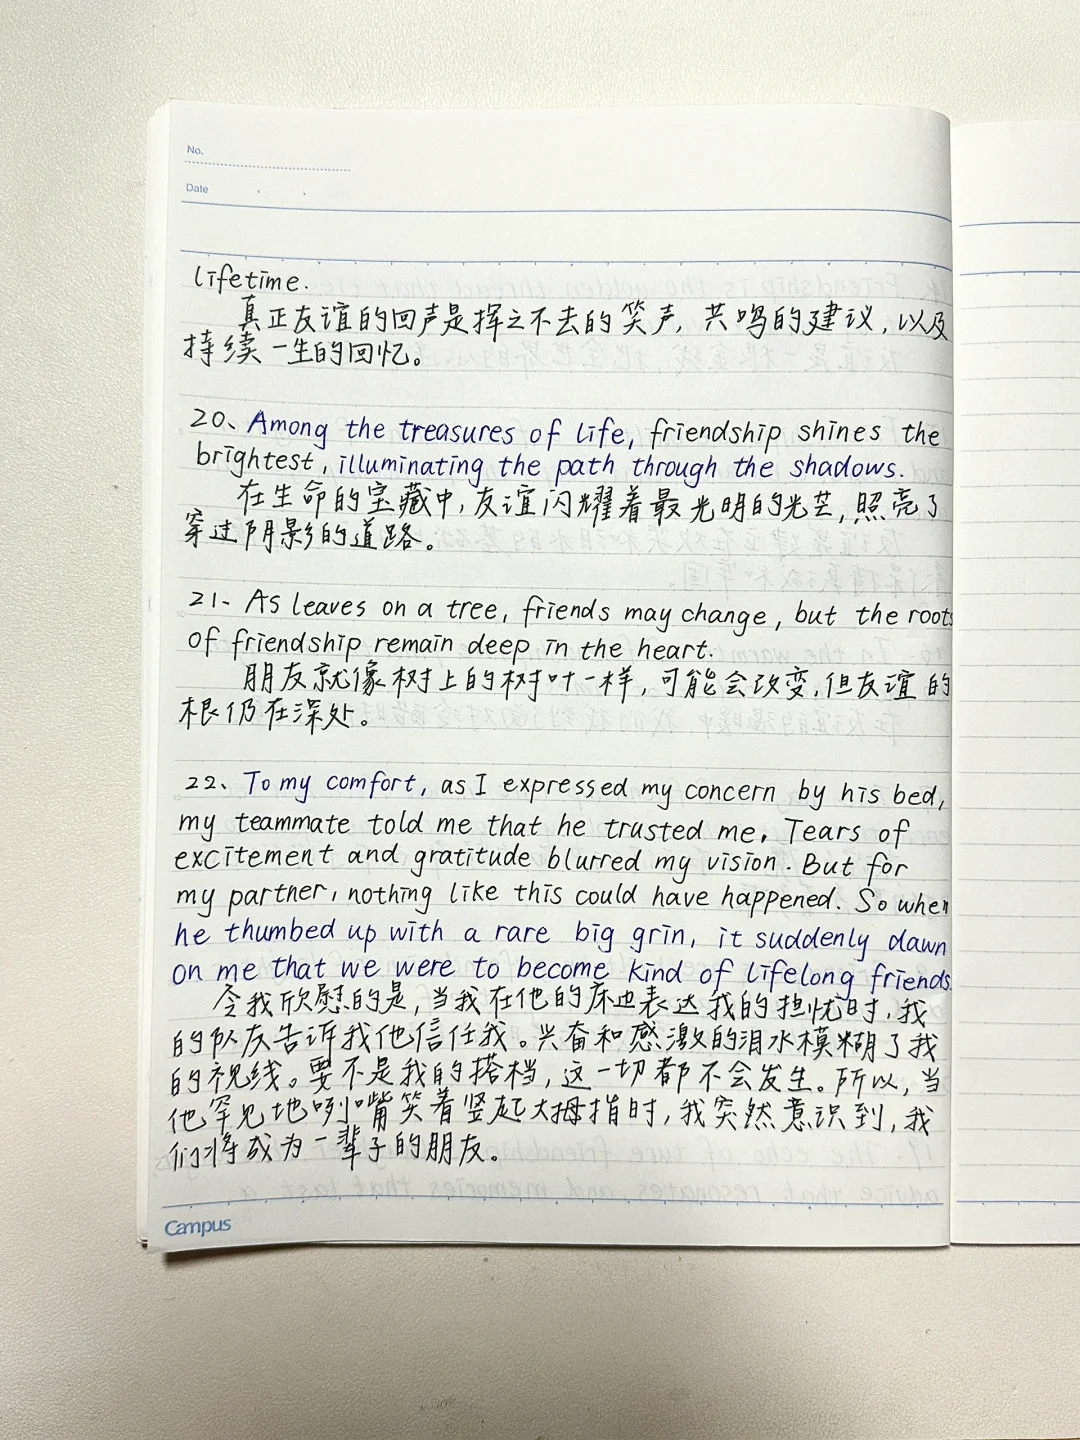 No.
Date
lifetime.
真正友谊的回声是挥之不去的笑声，共鸣的建议，以及
持续一生的回忆。
20、Among the treasures of life, friendship shines the
brightest, illuminating the path through the shadows.
在生命的宝藏中，友谊闪耀着最光明的光芒，照亮了
穿过阴影的道路。
21、As leaves on a tree, friends may change, but the roots
of friendship remain deep in the heart.
朋友就像树上的树叶一样，可能会改变，但友谊的
根仍在深处。
22、To my comfort, as I expressed my concern by his bed,
my teammate told me that he trusted me. Tears of
excitement and gratitude blurred my vision. But for
my partner, nothing like this could have happened. So when
he thumbed up with a rare big grin, it suddenly dawn
on me that we were to become kind of lifelong friends.
令我欣慰的是，当我在他的床边表达我的担忧时，我
的队友告诉我他信任我。兴奋和感激的泪水模糊了我
的视线。要不是我的搭档，这一切都不会发生。所以，当
他罕见地咧嘴笑着竖起大拇指时，我突然意识到，我
们将成为一辈子的朋友。
Campus